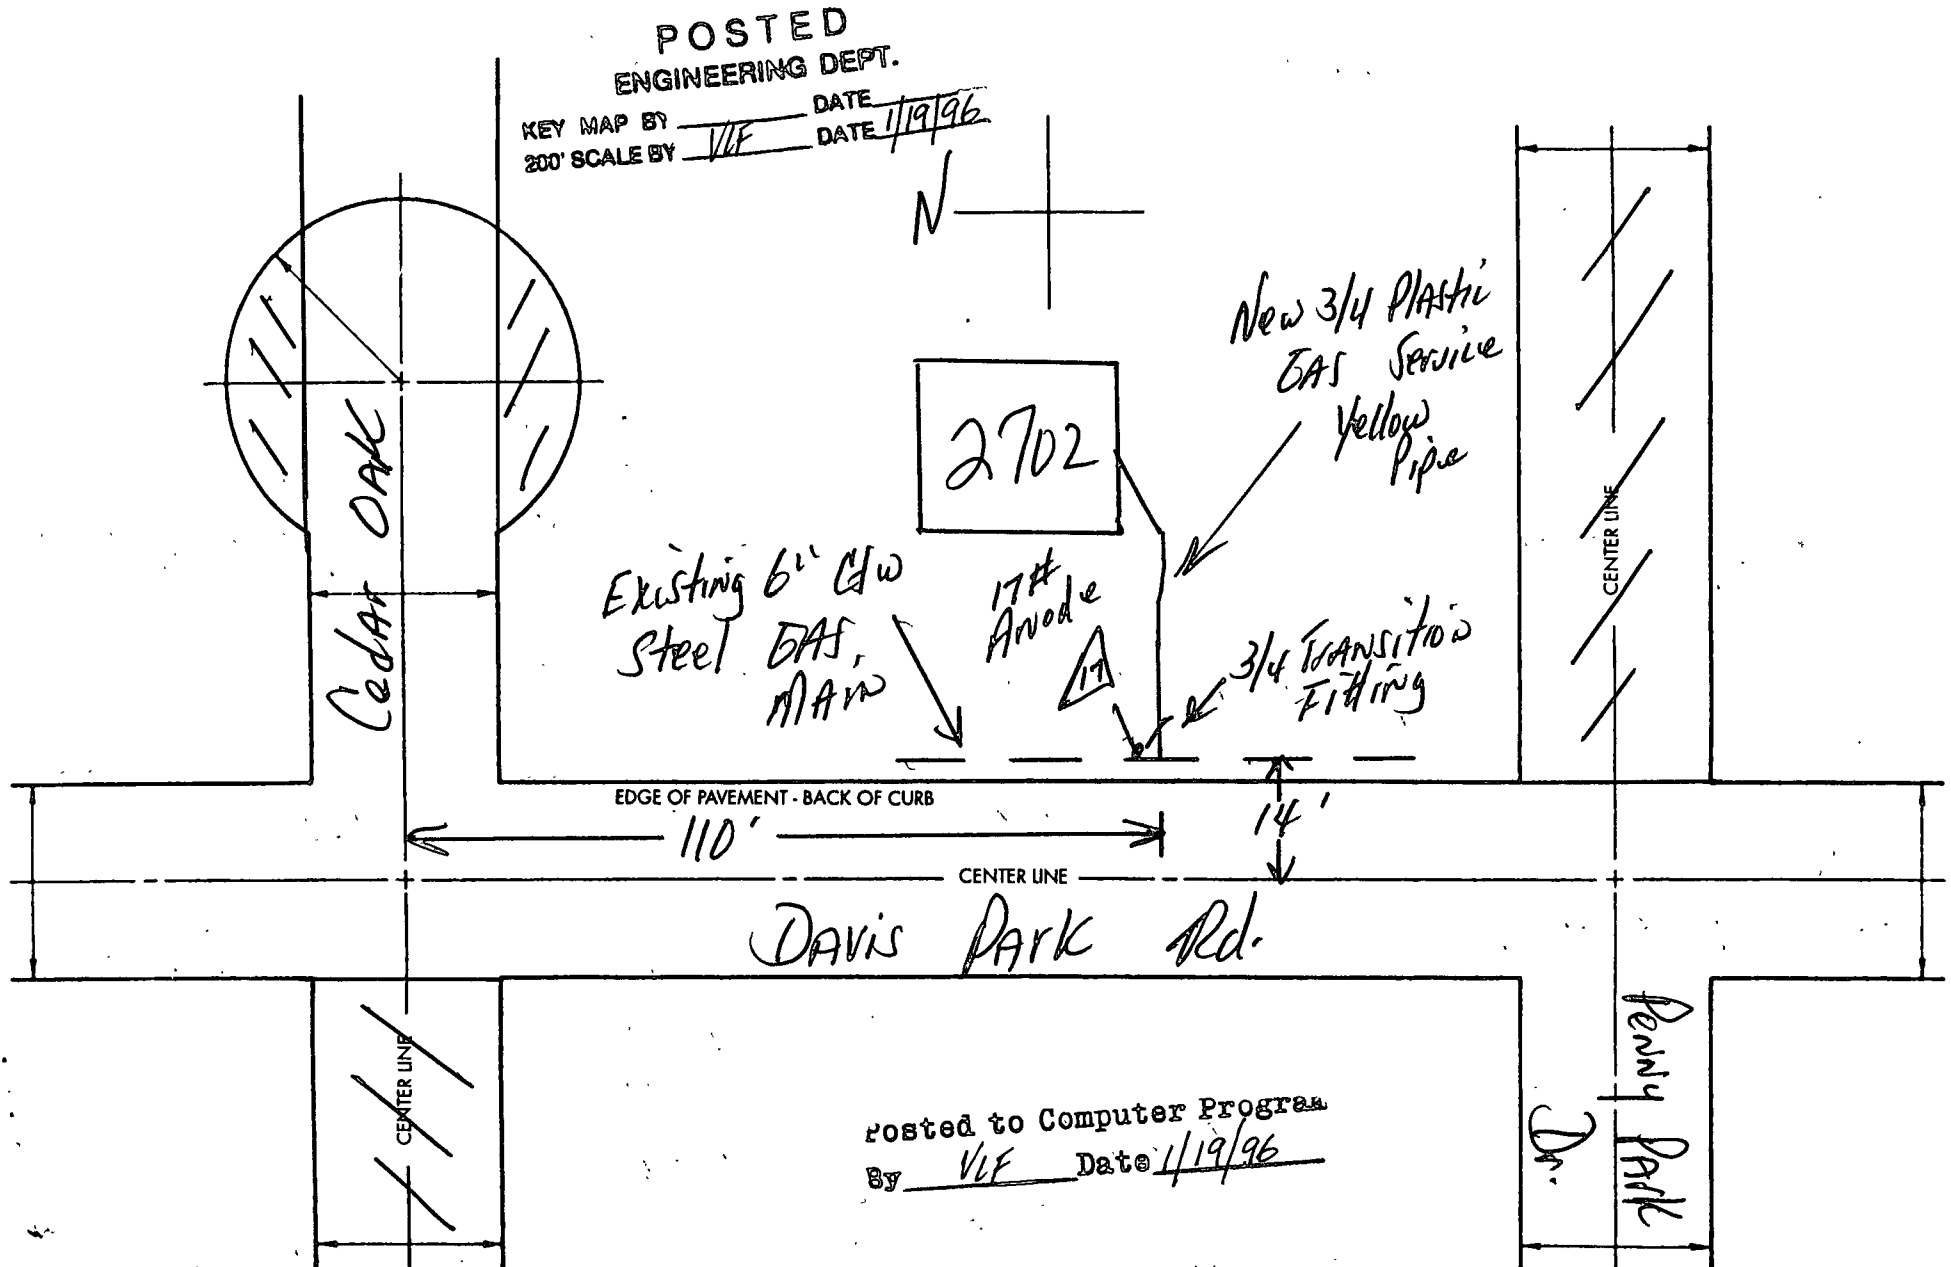 POSTED
ENGINEERING DEPT.
KEY MAP BY DATE
200' SCALE BY VLF DATE 1/19/96
N
New 3/4 Plastic
GAS Service
Yellow
Pipe
2702
Cedar OAK
Existing 6" C/W
Steel GAS
MAIN
17#
Anode
17
3/4 TRANSITION
FITTING
CENTER LINE
EDGE OF PAVEMENT - BACK OF CURB
110'
14'
CENTER LINE
DAVIS PARK Rd.
CENTER LINE
Penny PARK
Dr.
Posted to Computer Program
By VLF Date 1/19/96